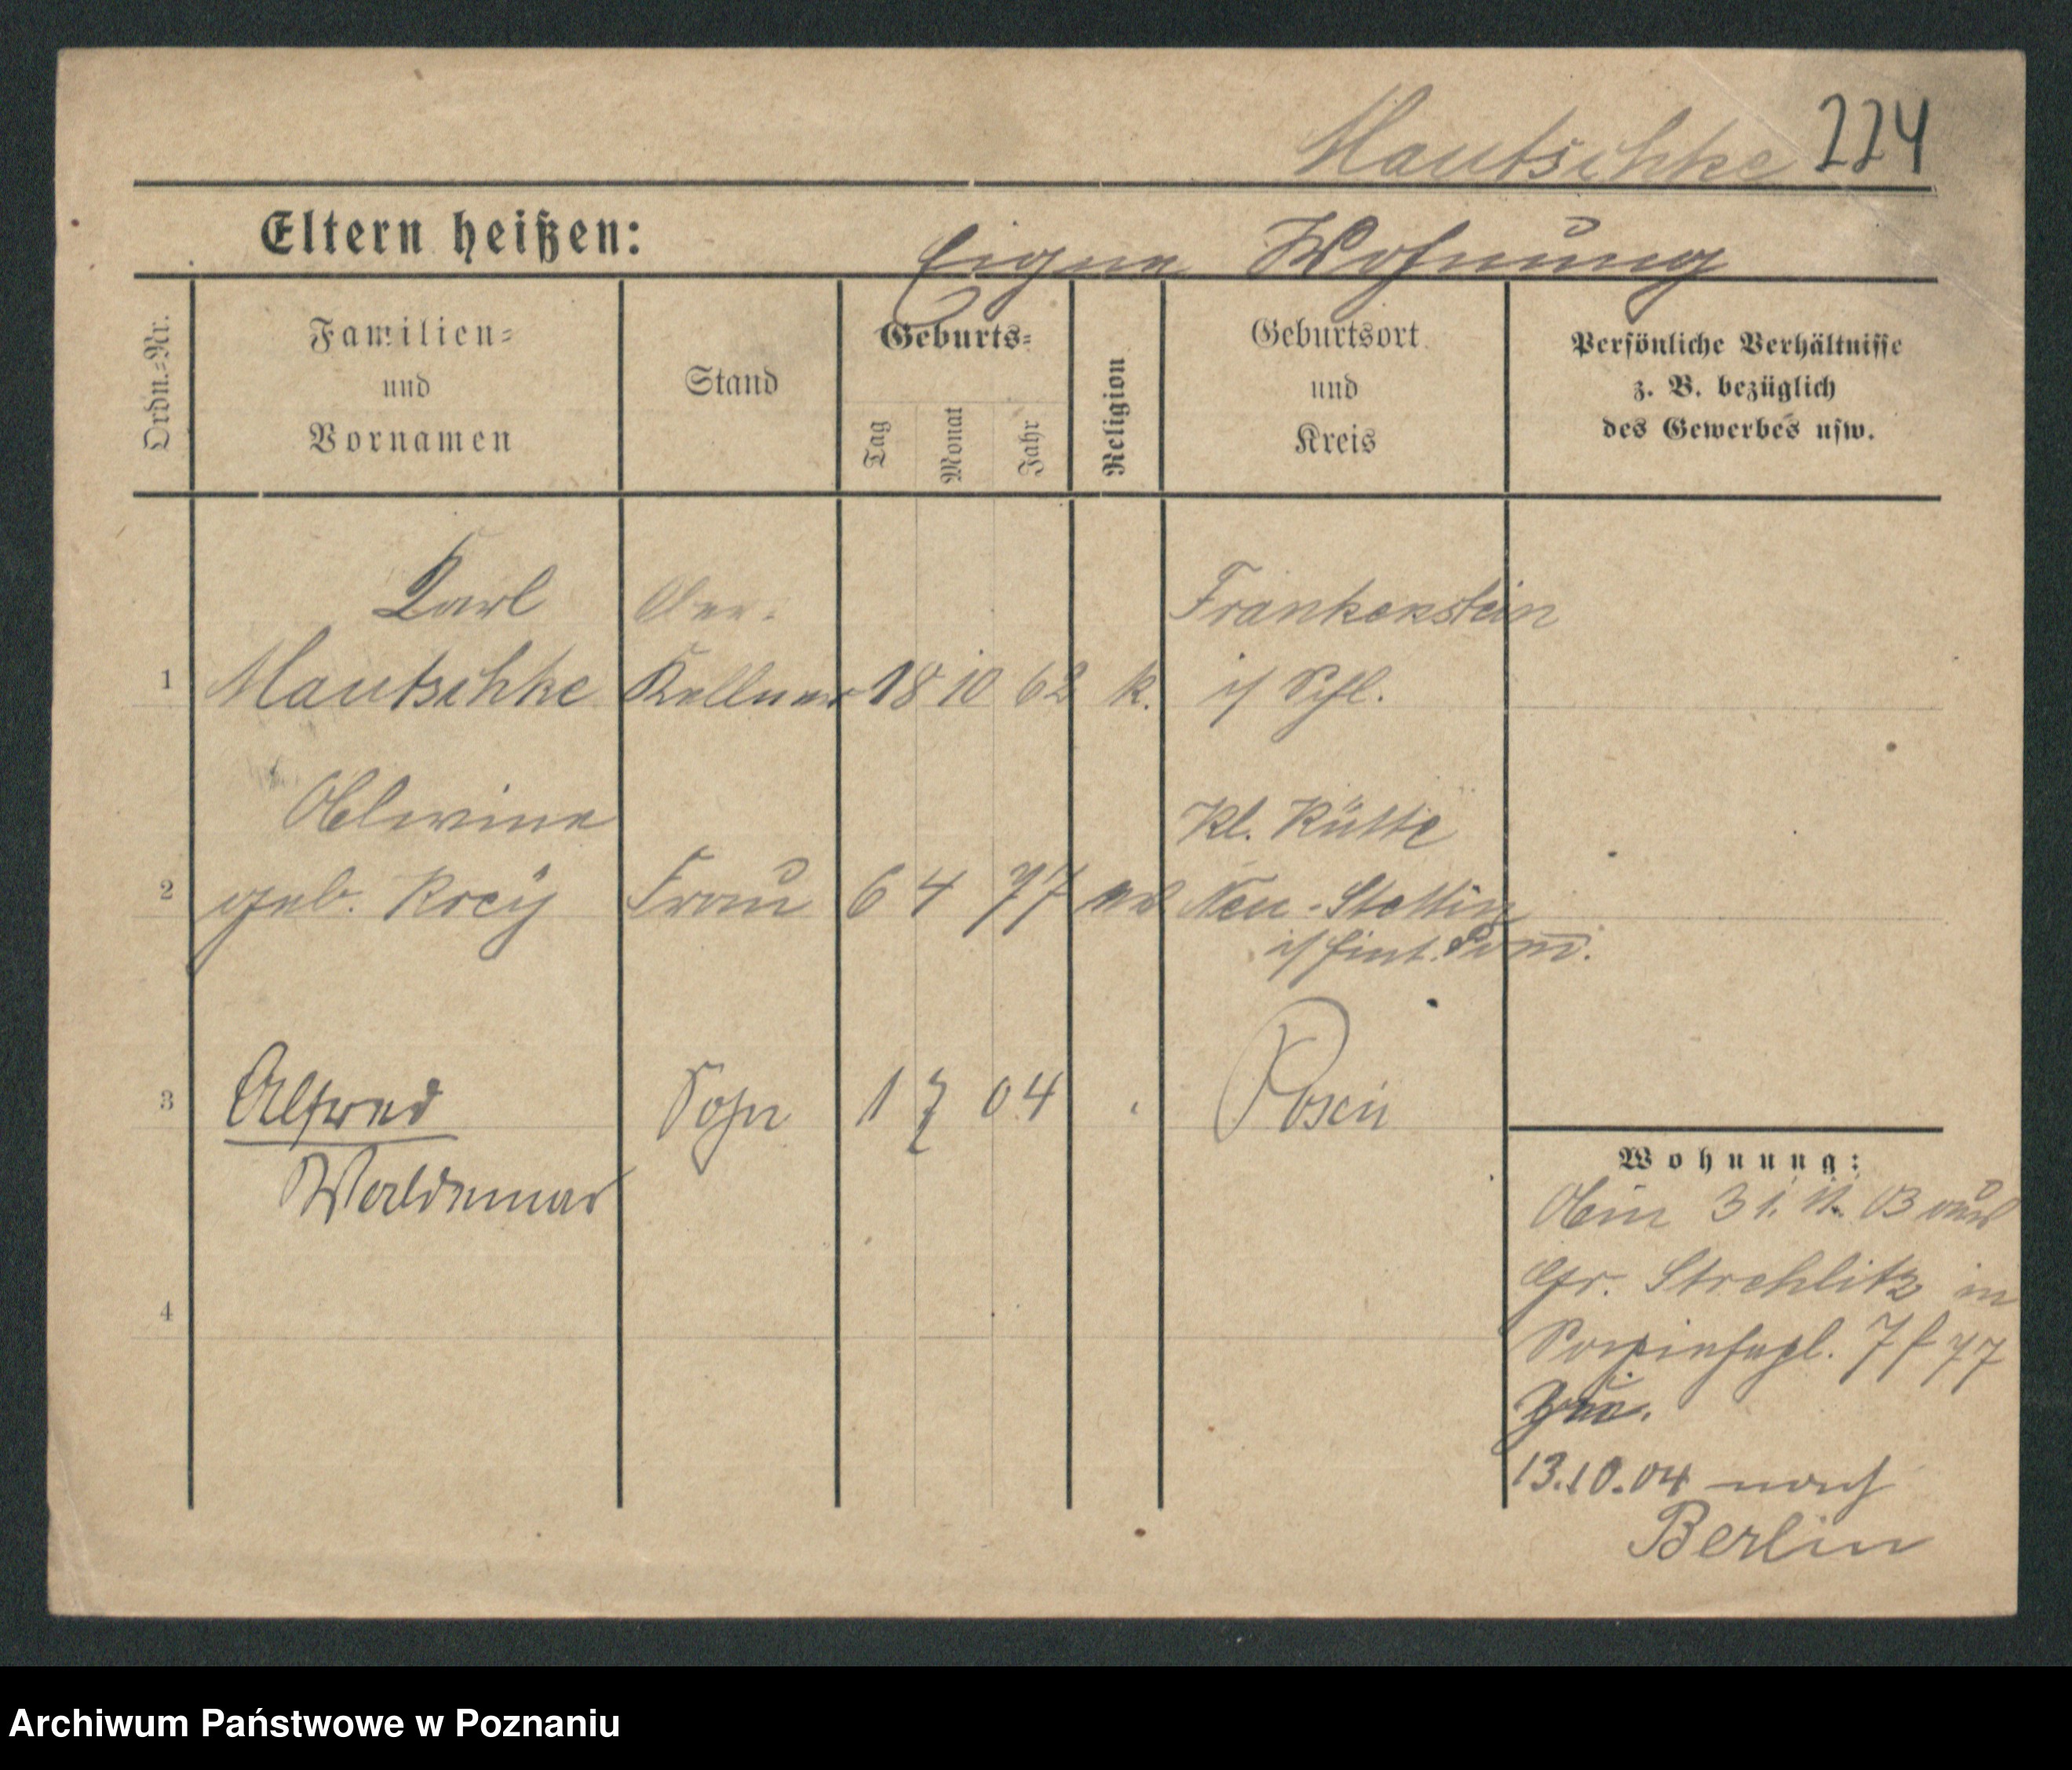 Mautschke 224
Eltern heißen: Eigene Wohnung
Ordn.=Nr.
Familien=
und
Vornamen
Stand
Geburts=
Tag
Monat
Jahr
Religion
Geburtsort
und
Kreis
Persönliche Verhältnisse
z. B. bezüglich
des Gewerbes usw.
Karl Frankenstein
1 Mautschke Kellner 18 10 62 k. i/ Schl.
Kl. Küdde
2 geb. Frau 6 4 77 Neu-Stettin
i/ Pom.
3 Alfred Sohn 1 7 04 Posen
Waldemar
4
Wohnung:
03 aus
Gr. Strehlitz in
13.10.04 nach
Berlin
Archiwum Państwowe w Poznaniu